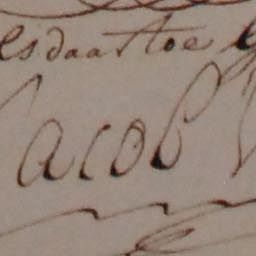 els daartoe
Jacob